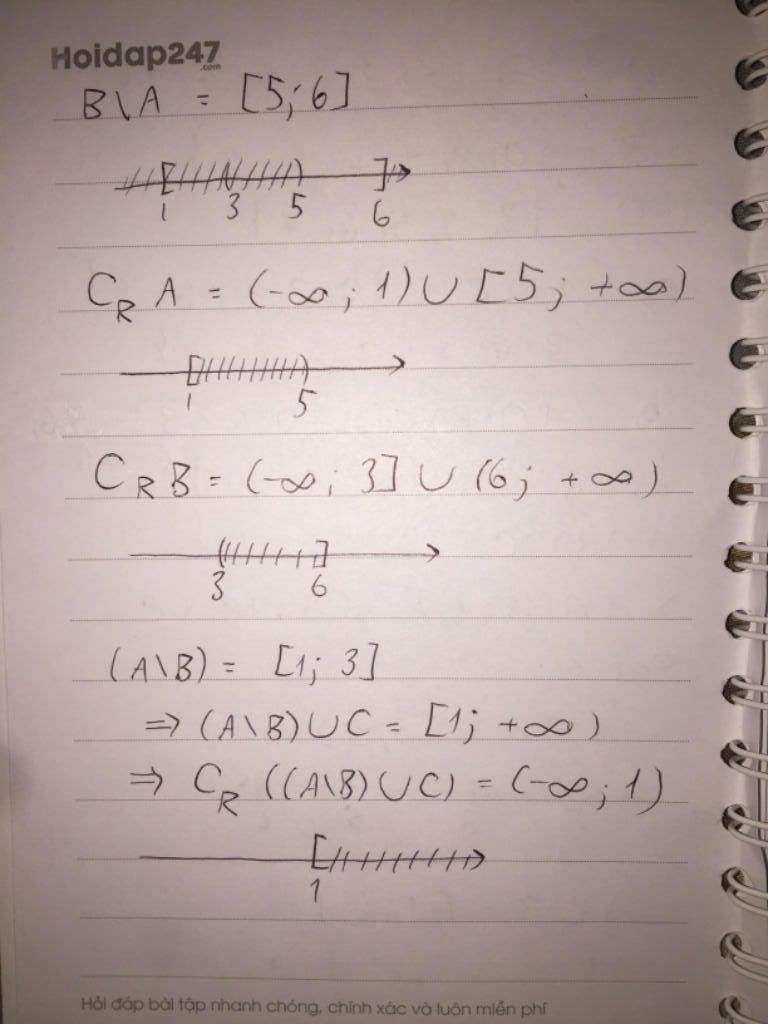 Hoidap247
.com
B\A = [5; 6]
1 3 5 6
C_R A = (-∞; 1) ∪ [5; +∞)
1 5
C_R B = (-∞; 3] ∪ (6; +∞)
3 6
(A\B) = [1; 3]
=> (A\B) ∪ C = [1; +∞)
=> C_R ((A\B) ∪ C) = (-∞; 1)
1
Hỏi đáp bài tập nhanh chóng, chính xác và luôn miễn phí